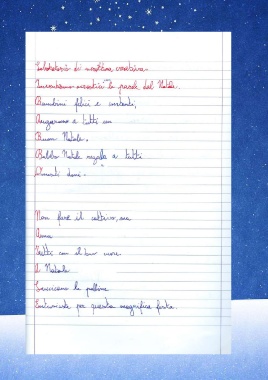 Laboratorio di scrittura creativa
Inventiamo acrostici con le parole del Natale.
Bambini felici e contenti,
Auguriamo a tutti un
Buon Natale.
Babbo Natale regala a tutti
doni.
Non fare il cattivo, ma
Ama
Tutti con il tuo cuore.
A Natale
Luccicano le palline
Entusiaste per questa magnifica festa.